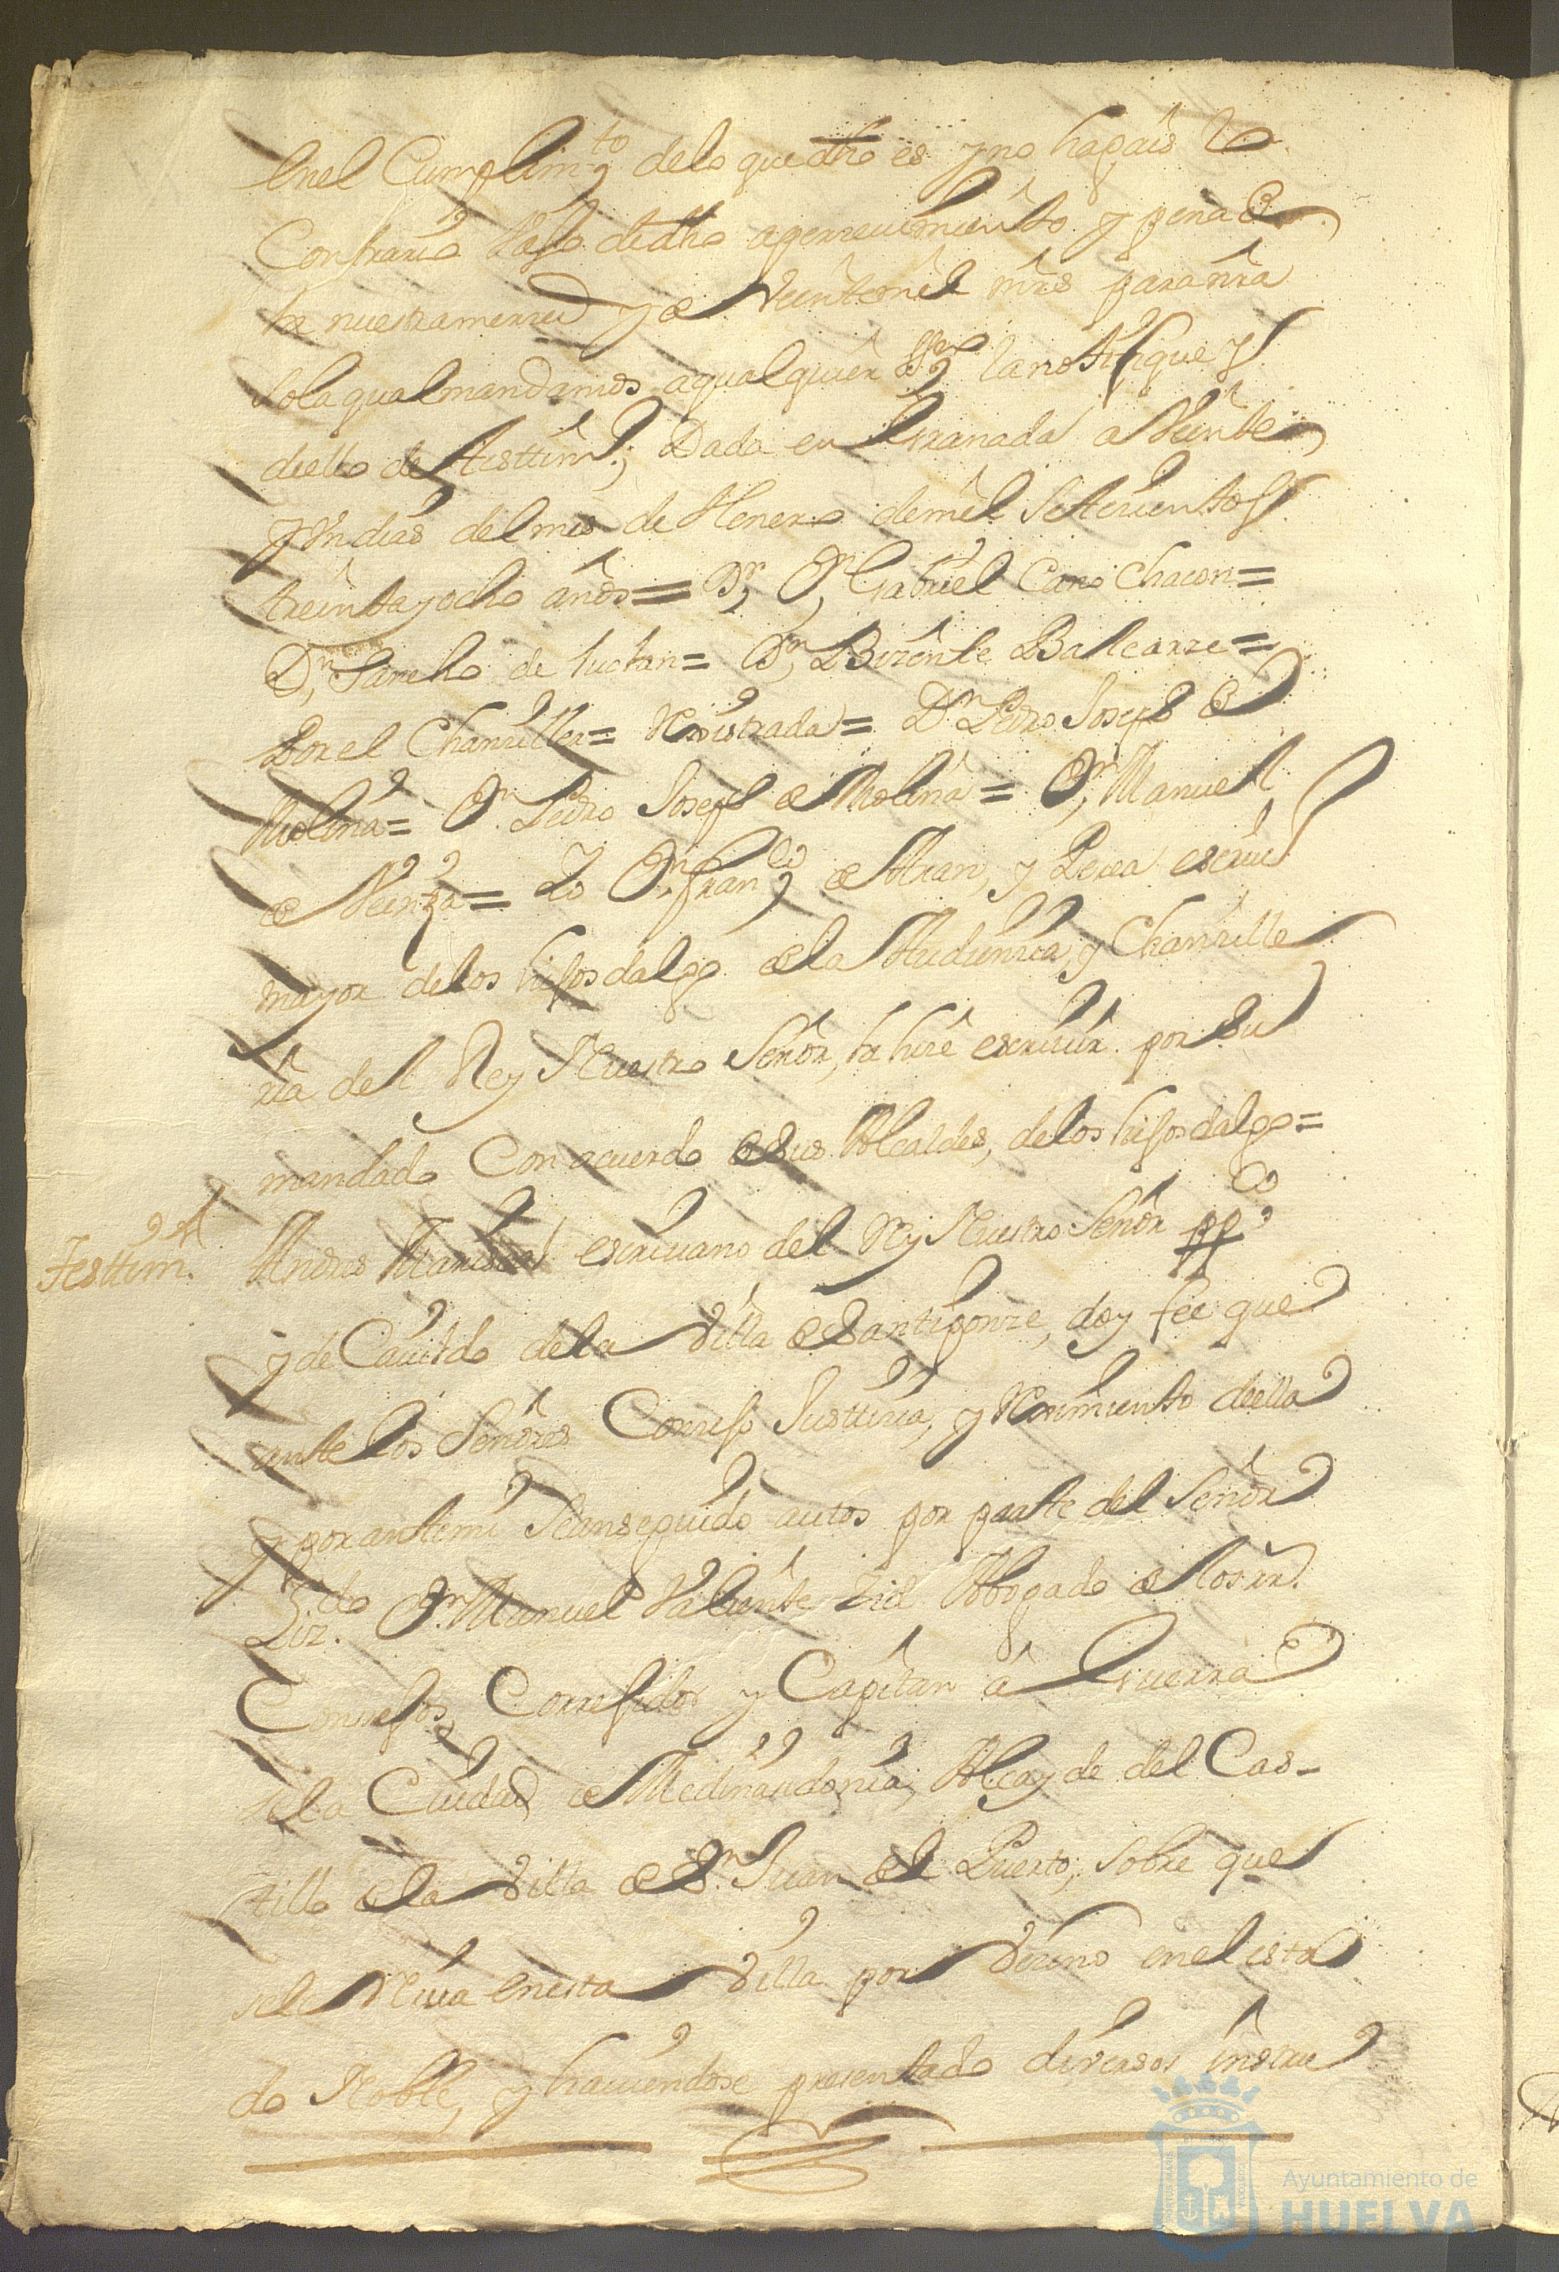 Enel Cumplimto delo que dho es y no hagais lo
Contrario bajo de dho aperceuimiento y pena de
la nuestra merced y de Veinte mil mrs para nra
so la qual mandamos a qualquier essno la notifique y
dello de Testtimo; Dada en Granada a Veinte
y Un dias del mes de Henero de mil setecientos
treinta y ocho años = Dr, Dn, Gabriel Cano Chacon =
Dn, Sancho de = Dn, Bizente Balcarze =
Por el Chanziller = Rexistrada = Dn Pedro Joseph de
Molina = Dn Pedro Joseph de Molina = Dn, Manuel
de = Yo Dn, Franco de Aran, y Perea escriuo
mayor delos hijosdalgo de la Audiencia, y Chanzille
ria del Rey Nuestro Señor, la hize escriuir por su
mandado Con acuerdo de sus Alcaldes, delos hijosdalgo =
Testtimo. Andres Mariscal escriuano del Rey Nuestro Señor ppco
y de Cauildo de la Villa de Santiponze, doy fee que
ante los Señores Conzejo Justtizia, y Reximiento della
y por ante mi se an seguido autos por parte del Señor
Lizdo. Dn. Manuel Valiente Vid Abogado de los RR.
Consejos, Correjidor y Capitan â Guerra
de la Ciudad de Medinasidonia, Alcayde del Cas-
tillo de la Villa de Sn Juan del Puerto, sobre que
se le Reciua en esta Villa por Vezino en el esta
do Noble, y hauiendose presentado diversos instru
Ayuntamiento de
HUELVA